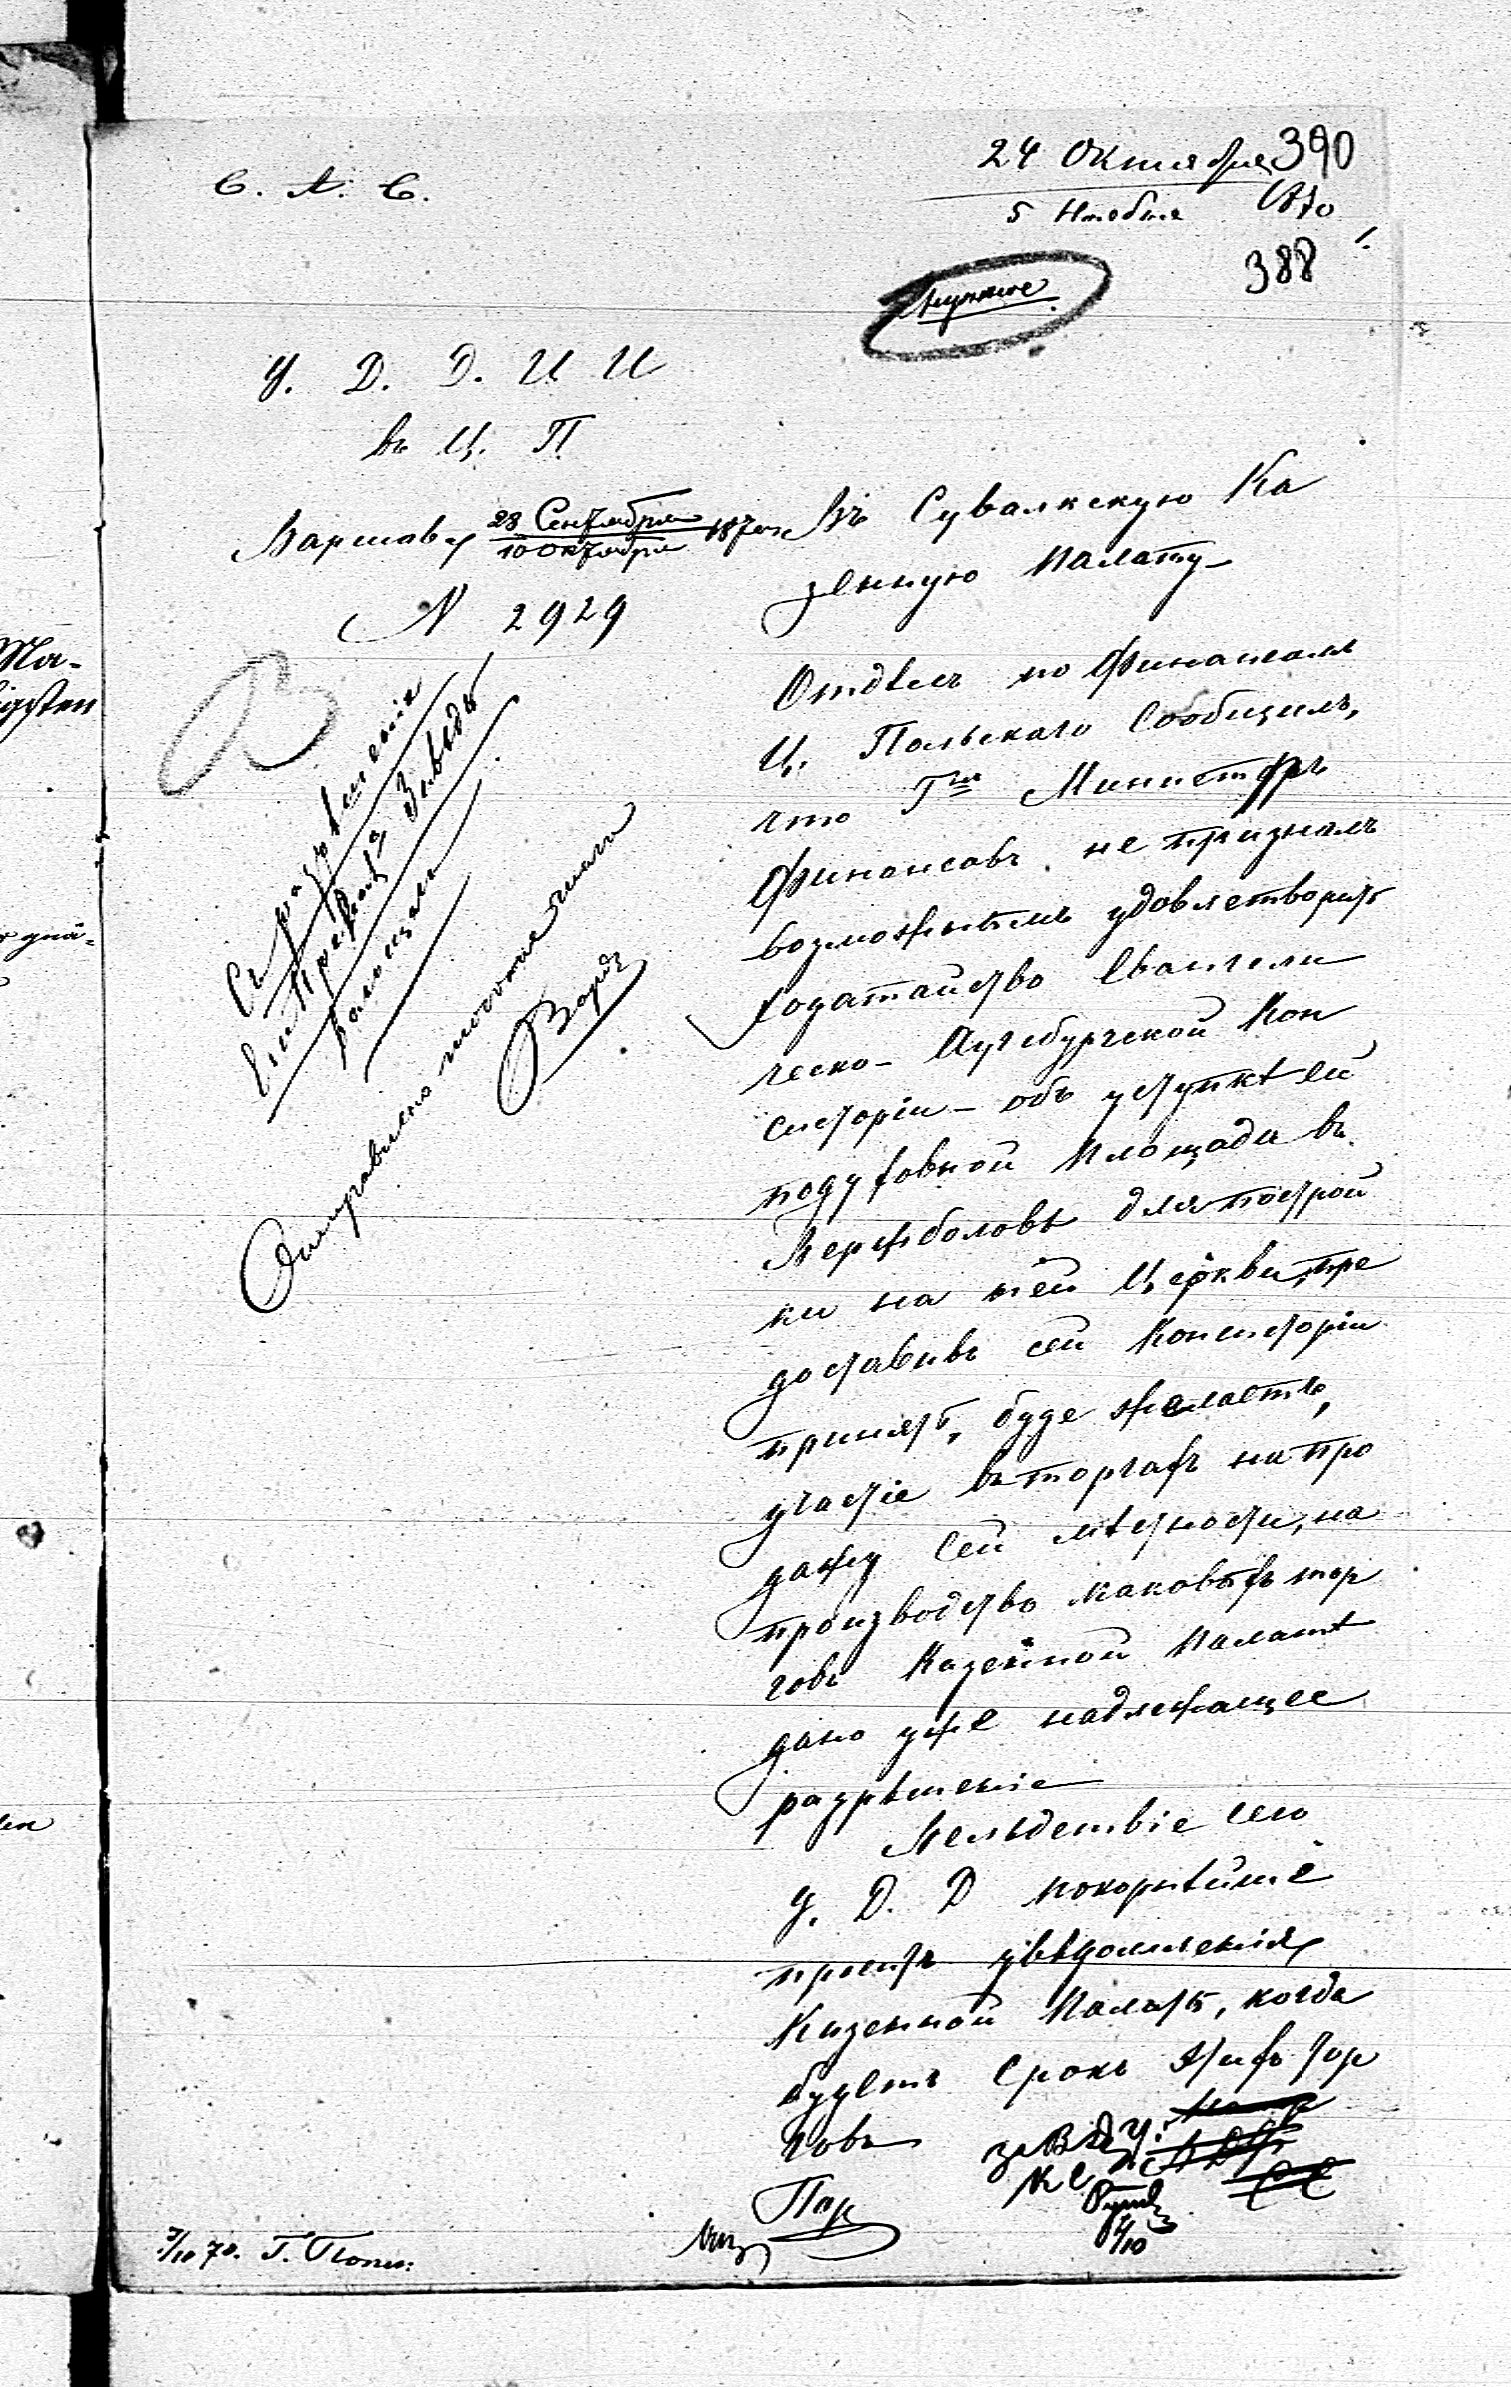 24 Октября 390
С. А. С.
5 Ноября 1870
388
Нужное
У. Д. Д. И И
въ Ц. П
Варшава 28 Сентября 1870
10 Октября
N 2929
Въ Сувалкскую Ка
зенную Палату
Отдѣлъ по Финансамъ
Ц. Польскаго Сообщилъ,
что Гнъ Министръ
Финансовъ не призналъ
возможнымъ удовлетворить
ходатайство Евангели
ческо-Аугсбургской Кон
систоріи - объ уступкѣ ей
подуховной площади въ
Вержболовѣ для построй
ки на ней Церкви, пре
доставивъ сей Консисторіи
принять, буде желаетъ,
участіе въ торгахъ на про
дажу Сей мѣстности, на
производство каковыхъ тор
говъ Казенной Палатѣ
дано уже надлежащее
разрѣшеніе
Вслѣдствіе сего
У. Д. Д покорнѣйше
проситъ увѣдомленія
Казенной Палаты, когда
будетъ Срокъ этихъ тор
говъ
Съ разрѣшенія
Отправлено
7/10 70.